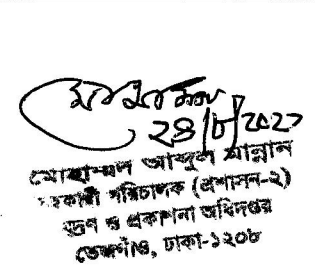 ২৪/৮/২০২১
মোহাম্মদ আব্দুল মান্নান
সহকারী পরিচালক (প্রশাসন-২)
মুদ্রণ ও প্রকাশনা অধিদপ্তর
তেজগাঁও, ঢাকা-১২০৮